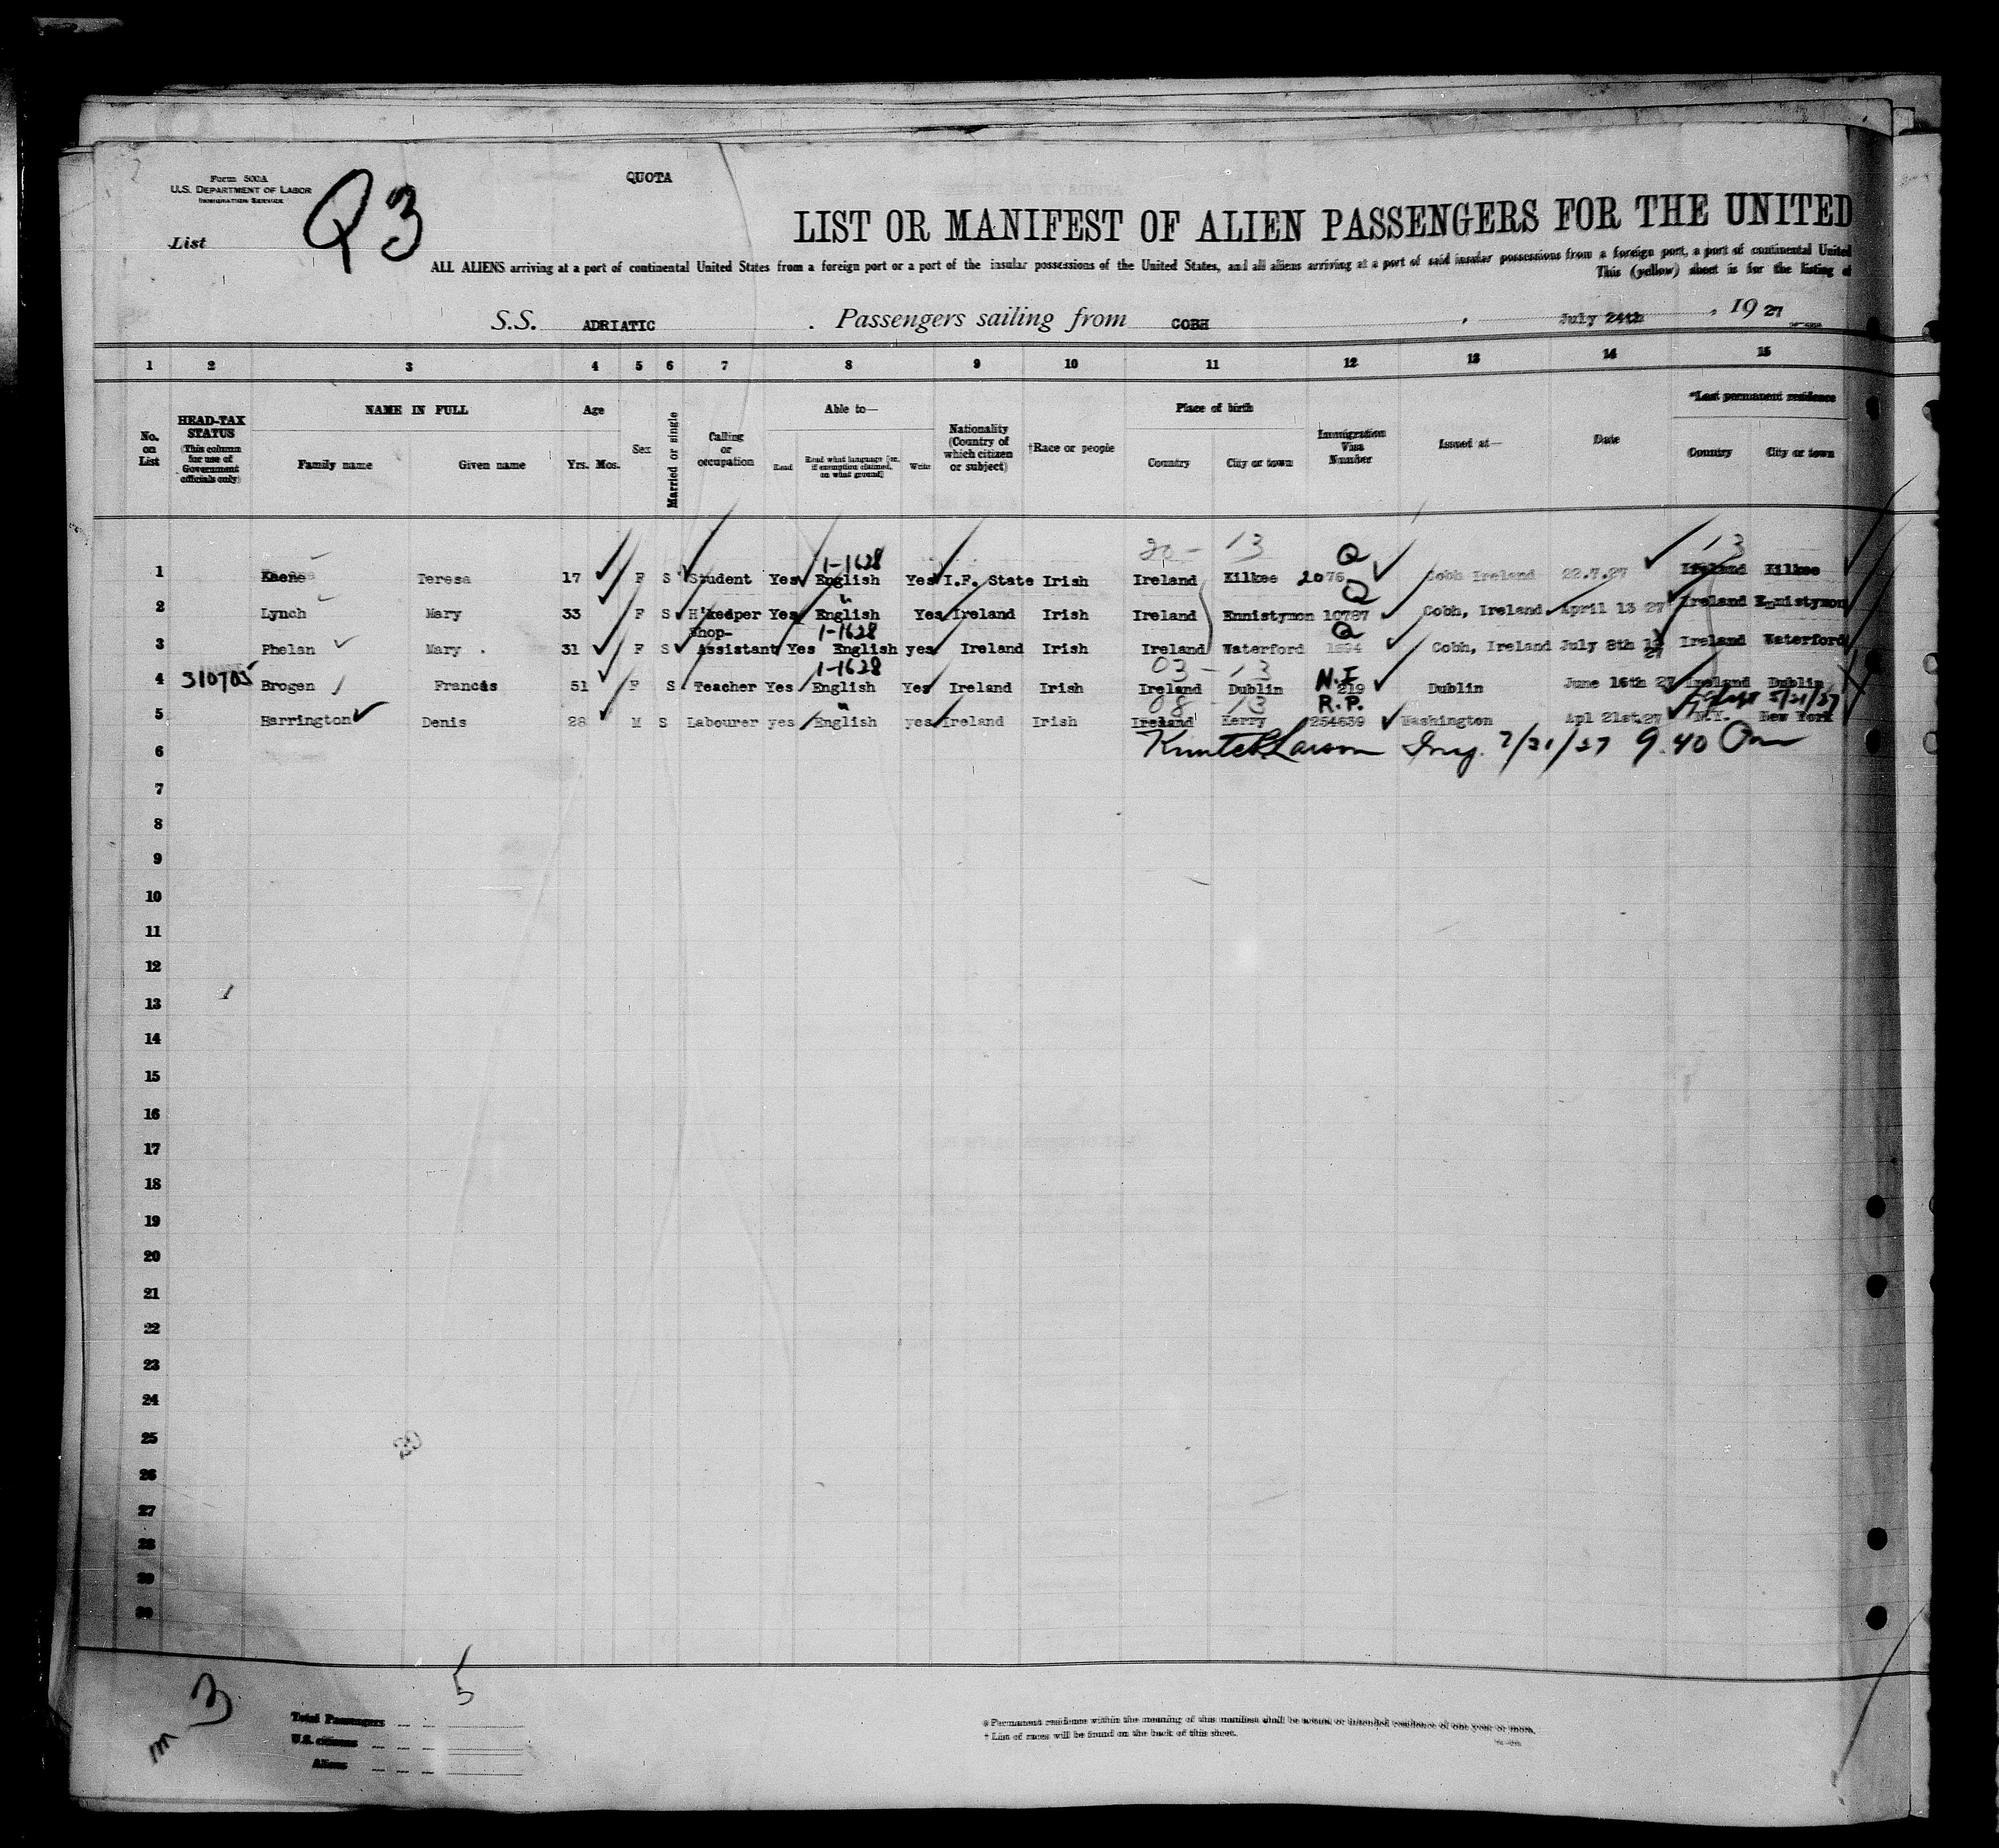 Form 500A
U.S. DEPARTMENT OF LABOR
IMMIGRATION SERVICE
QUOTA
List Q3
LIST OR MANIFEST OF ALIEN PASSENGERS FOR THE UNITED
ALL ALIENS arriving at a port of continental United States from a foreign port or a port of the insular possessions of the United States, and all aliens arriving at a port of said insular possessions from a foreign port, a port of continental United
This (yellow) sheet is for the listing of
S.S. ADRIATIC . Passengers sailing from COBH , July 24th , 19 27
1 2 3 4 5 6 7 8 9 10 11 12 13 14 15
No. on List
HEAD-TAX STATUS (This column for use of Government officials only)
NAME IN FULL
Family name Given name
Age
Yrs. Mos.
Sex
Married or single
Calling or occupation
Able to—
Read Read what language [or, if exemption claimed, on what ground] Write
Nationality (Country of which citizen or subject)
†Race or people
Place of birth
Country City or town
Immigration Visa Number
Issued at—
Date
*Last permanent residence
Country City or town
20 - 13 Q 13
1-1628
1 Keane Teresa 17 F S Student Yes English Yes I.F. State Irish Ireland Kilkee 2076 Cobh Ireland 22.7.27 Ireland Kilkee
" Q
2 Lynch Mary 33 F S H'keeper Yes English Yes Ireland Irish Ireland Ennistymon 10787 Cobh, Ireland April 13 27 Ireland Ennistymon
Shop- 1-1628 Q
3 Phelan Mary 31 F S Assistant Yes English yes Ireland Irish Ireland Waterford Cobh, Ireland July 8th 27 Ireland Waterford
1-1628 03 - 13 N.I.
4 310705 Brogen Francis 51 F S Teacher Yes English Yes Ireland Irish Ireland Dublin 219 Dublin June 16th 27 Ireland Dublin
" 08 - 13 R.P.
5 Harrington Denis 28 M S Labourer yes English yes Ireland Irish Ireland Kerry 254639 Washington Apl 21st.27 N.Y. New York
6 Larson Insp. 7/31/27 9.40
7
8
9
10
11
12
13
14
15
16
17
18
19
20
21
22
23
24
25
26
27
28
29
30
20
3
m
5
Total Passengers
U.S. citizens
Aliens
* Permanent residence within the meaning of this manifest shall be actual or intended residence of one year or more.
† List of races will be found on the back of this sheet.